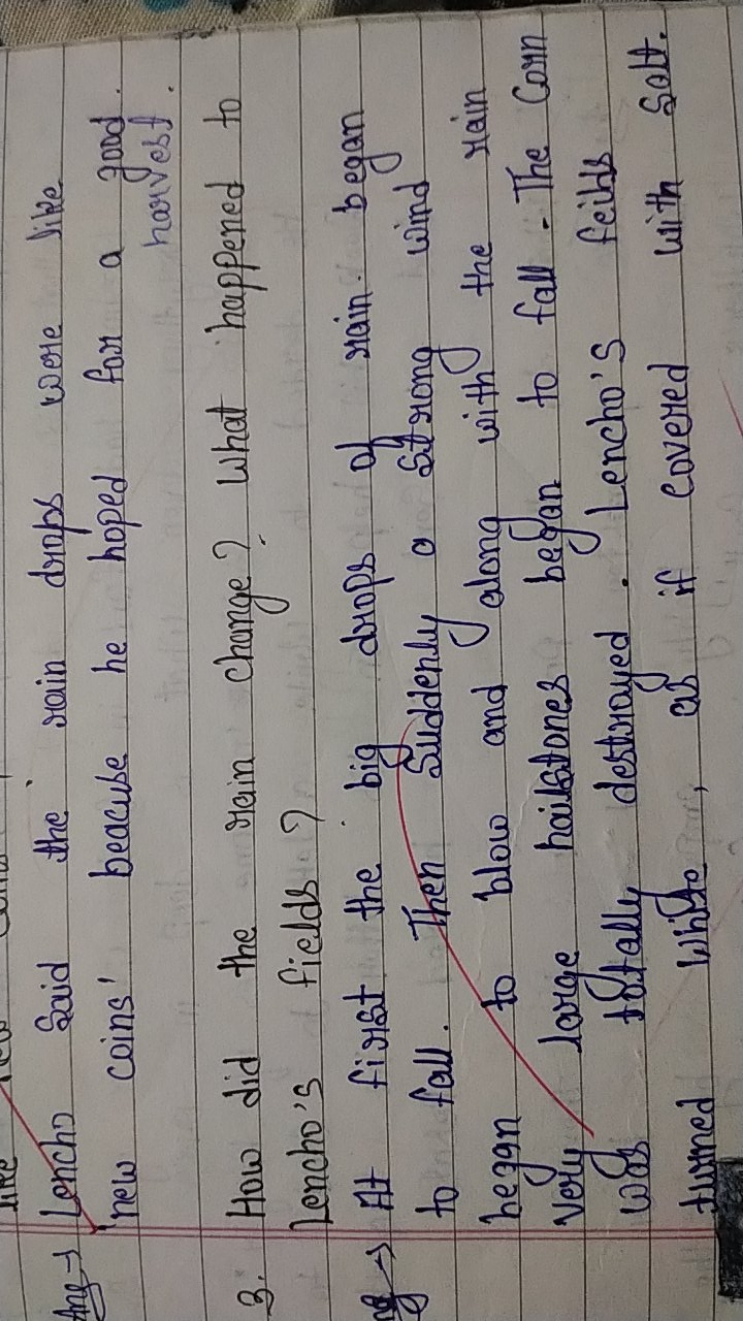 Ang → Lencho said the rain drops were like
'new coins' beacuse he hoped for a good.
harvest.
3. How did the rain change? What happened to
Lencho's fields?
At first the big drops of rain began
to fall. Then Suddenly a strong wind
began to blow and along with the rain
very large hailstones began to fall. The Corn
was totally destroyed. Lencho's feilds
turned white, as if covered with Salt.